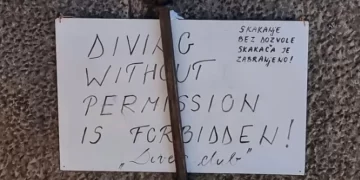 DIVING
WITHOUT
PERMISSION
IS FORBIDDEN!
SKAKANJE
BEZ DOZVOLE
SKAKAČA JE
ZABRANJENO!